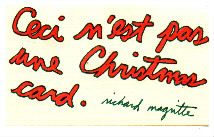 Ceci n'est pas
une Christmas
card.
richard magritte